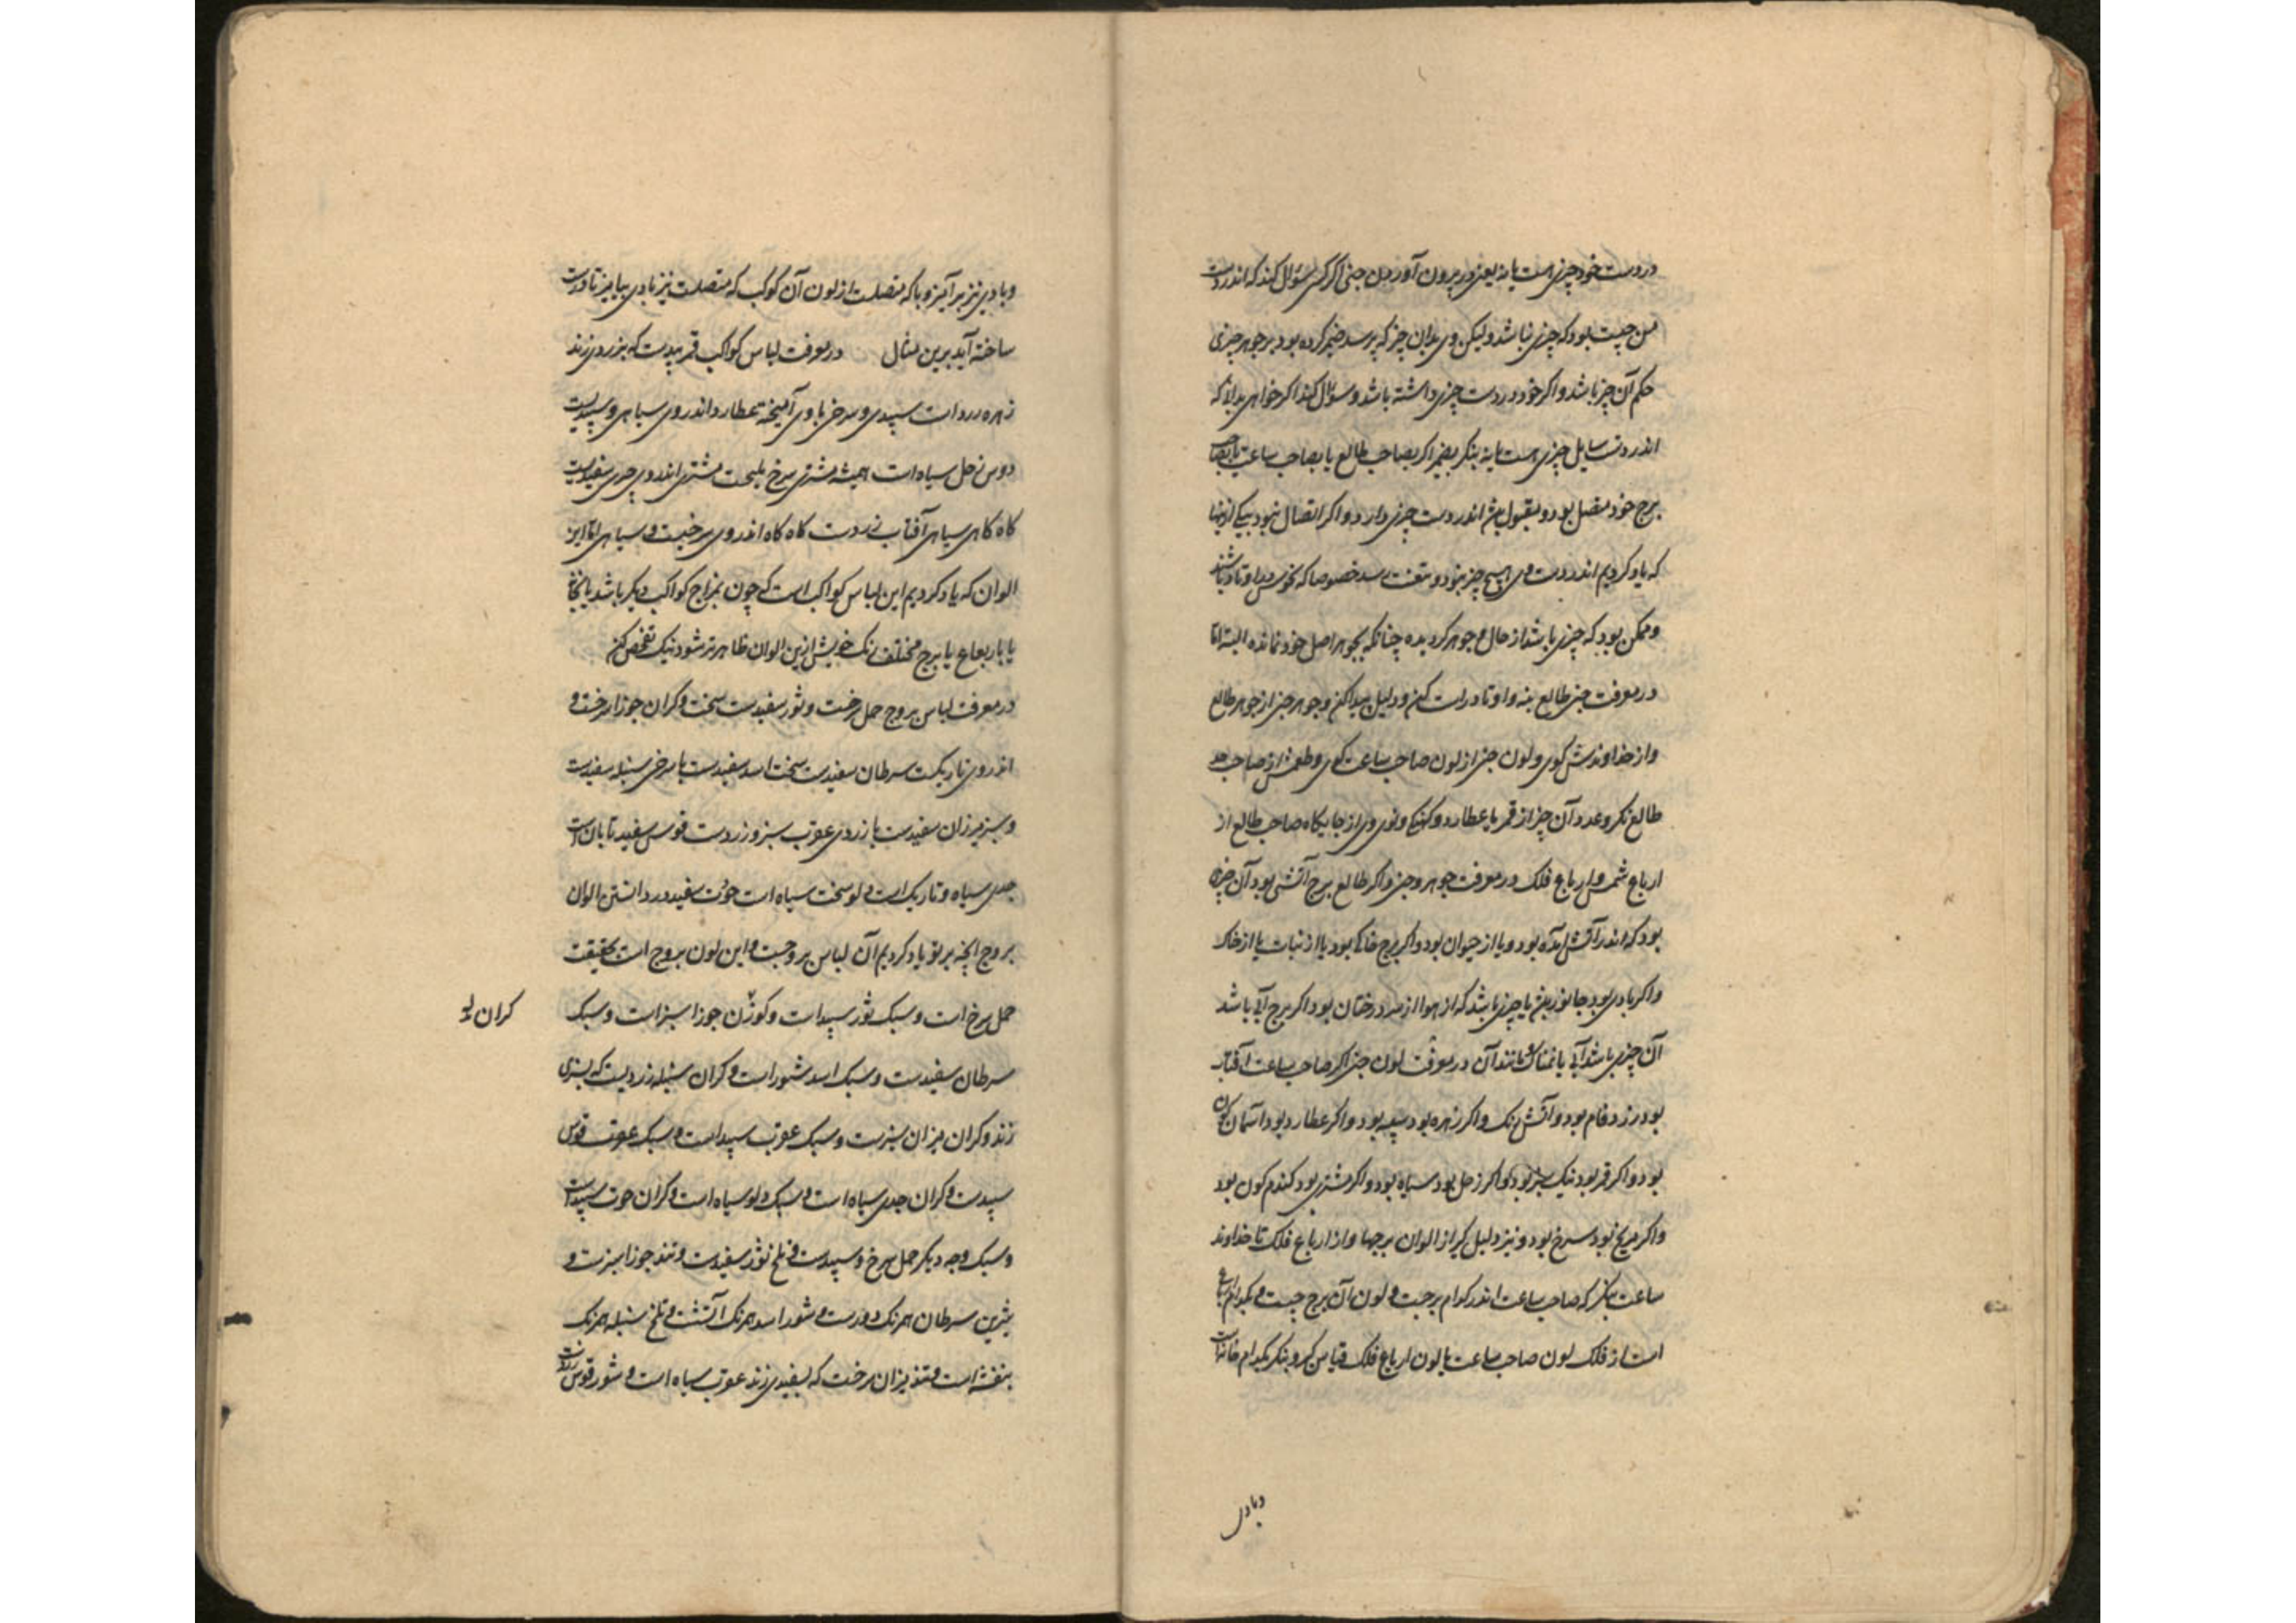 در دست خود چیزی است یا نه یعنی در بیرون آوردن جنی اگر کسی سؤال کند که اندر دست
من چیست بود که چیزی نباشد ولیکن وی بدان چیز که پرسد ضمیر کرده بود بر جوهر چیزی
حکم آن چیز باشد و اکر خود در دست چیزی داشته باشد و سؤال کند اکر خواهی بدانی که
اندر دست سایل چیزی هست یا نه بنکر بقمر اکر بصاحب طالع یا بصاحب ساعت یا بصاحب
برج خود متصل بود و مقبول اندر دست چیزی دارد و اکر اتصال نبود بیکی ازینها
که یاد کردیم اندر دست وی هیچ چیز نبود خصوصا که نحوس در اوتاد باشند
و ممکن بود که چیزی باشد از حال و جوهر کردیده چنانکه بجوهر اصل خود نمانده البته اما
در معرفت جنی طالع بنه و اوتاد راست کن و دلیل پیدا کن و جوهر جنی از جوهر طالع
و از خداوندش کوی و لون جنی از لون صاحب ساعت کوی و طعمش از صاحب حد
طالع نکر و عدد آن چیز از قمر یا عطارد و کهنکی و نوی وی از جایکاه صاحب طالع از
ارباع شمس و ارباع فلک در معرفت جوهر و جنی و اکر طالع برج آتشی بود آن چیزی
بود که اندر آتش آمده بود و یا از حیوان بود و اکر برج خاکی بود یا از نبات یا از خاک
و اکر بادی بود جانور یا چیزی باشد که از هوا از درختان بود اکر برج آبی باشد
آن چیزی باشد آبی یا نمناک و مانند آن در معرفت لون جنی اکر صاحب ساعت آفتاب
بود زرد فام بود و آتش رنک و اکر زهره بود سپید بود و اکر عطارد بود آسمان کون
بود و اکر قمر بود نیک سبز بود و اکر زحل بود سیاه بود و اکر مشتری بود کندم کون بود
و اکر مریخ بود سرخ بود و نیز دلیل کیر از الوان برجها و از ارباع فلک تا خداوند
ساعت بنکر که صاحب ساعت اندر کدام برجست و لون آن برج چیست و بکدام ارباع
است از فلک لون صاحب ساعت با لون ارباع فلک قیاس کن و بنکر بکدام خانه است
و با وی
و با وی نیز برآمیز و با که متصلست از لون آن کوکب که متصلست نیز با وی بیامیز تا درست
ساخته آید برین مثال در معرفت لباس کواکب قمر سپیدست که بزردی زند
زهره زرد است سپیدی و سرخی با وی آمیخته عطارد اندر وی سیاهی و سپیدیست
زحل سیاه است همیشه مشتری سرخ مشتری اندر وی چیزی سفیدیست
کاه کاهی سیاهی آفتاب زردست کاه کاه اندر وی سرخیست و سیاهی اما این
الوان که یاد کردیم این لباس کواکب است که چون بمزاج کواکب دیکر باشد
یا بارباع یا برج مختلف رنک خویش ازین الوان ظاهرتر شود نیک تفحص کن
در معرفت لباس بروج حمل سرخست و ثور سفیدست سخت و کران جوزا سرخست و
اندر وی تاریکست سرطان سفیدست سخت اسد سفیدست با سرخی سنبله سفیدست
و سبز میزان سفیدست با زردی عقرب سبز و زردست قوس سفید تابان است
جدی سیاه و تاریک است دلو سخت سیاه است حوت سفید در دانستن الوان
بروج انچه برتو یاد کردیم آن لباس بروجست و این لون بروج است بحقیقت
حمل سرخ است و سبک ثور سپید است و کوژن جوزا سبز است و سبک
کران
سرطان سفیدست و سبک اسد شور است و کران سنبله زردیست که بسبزی
زند و کران میزان سبزست و سبک عقرب سپید است و سبک عقرب قوس
سپیدست و کران جدی سیاه است و سبک دلو سیاه است و کران حوت سپید است
و سبک وجه دیکر حمل سرخ و سپیدست و تلخ ثور سفیدست و تند جوزا سبزست و
شیرین سرطان همرنک دودست و شور اسد همرنک آتشست و تلخ سنبله همرنک
بنفشه است و تند میزان سرخست که بسفیدی زند عقرب سیاه است و شور قوس زردست